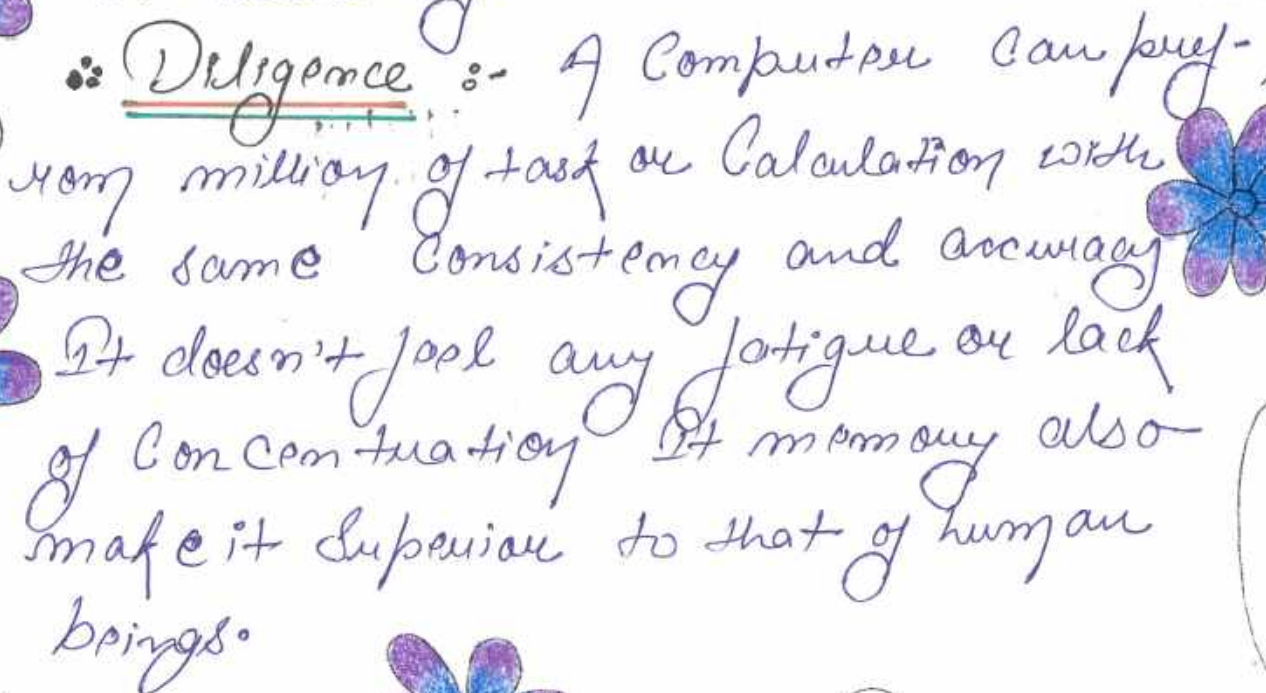 Diligence :- A Computer can pref-
rom million of task or Calculation with
the same Consistency and accuracy
It doesn't feel any fatigue or lack
of Concentration It memory also
make it Superior to that of human
beings.